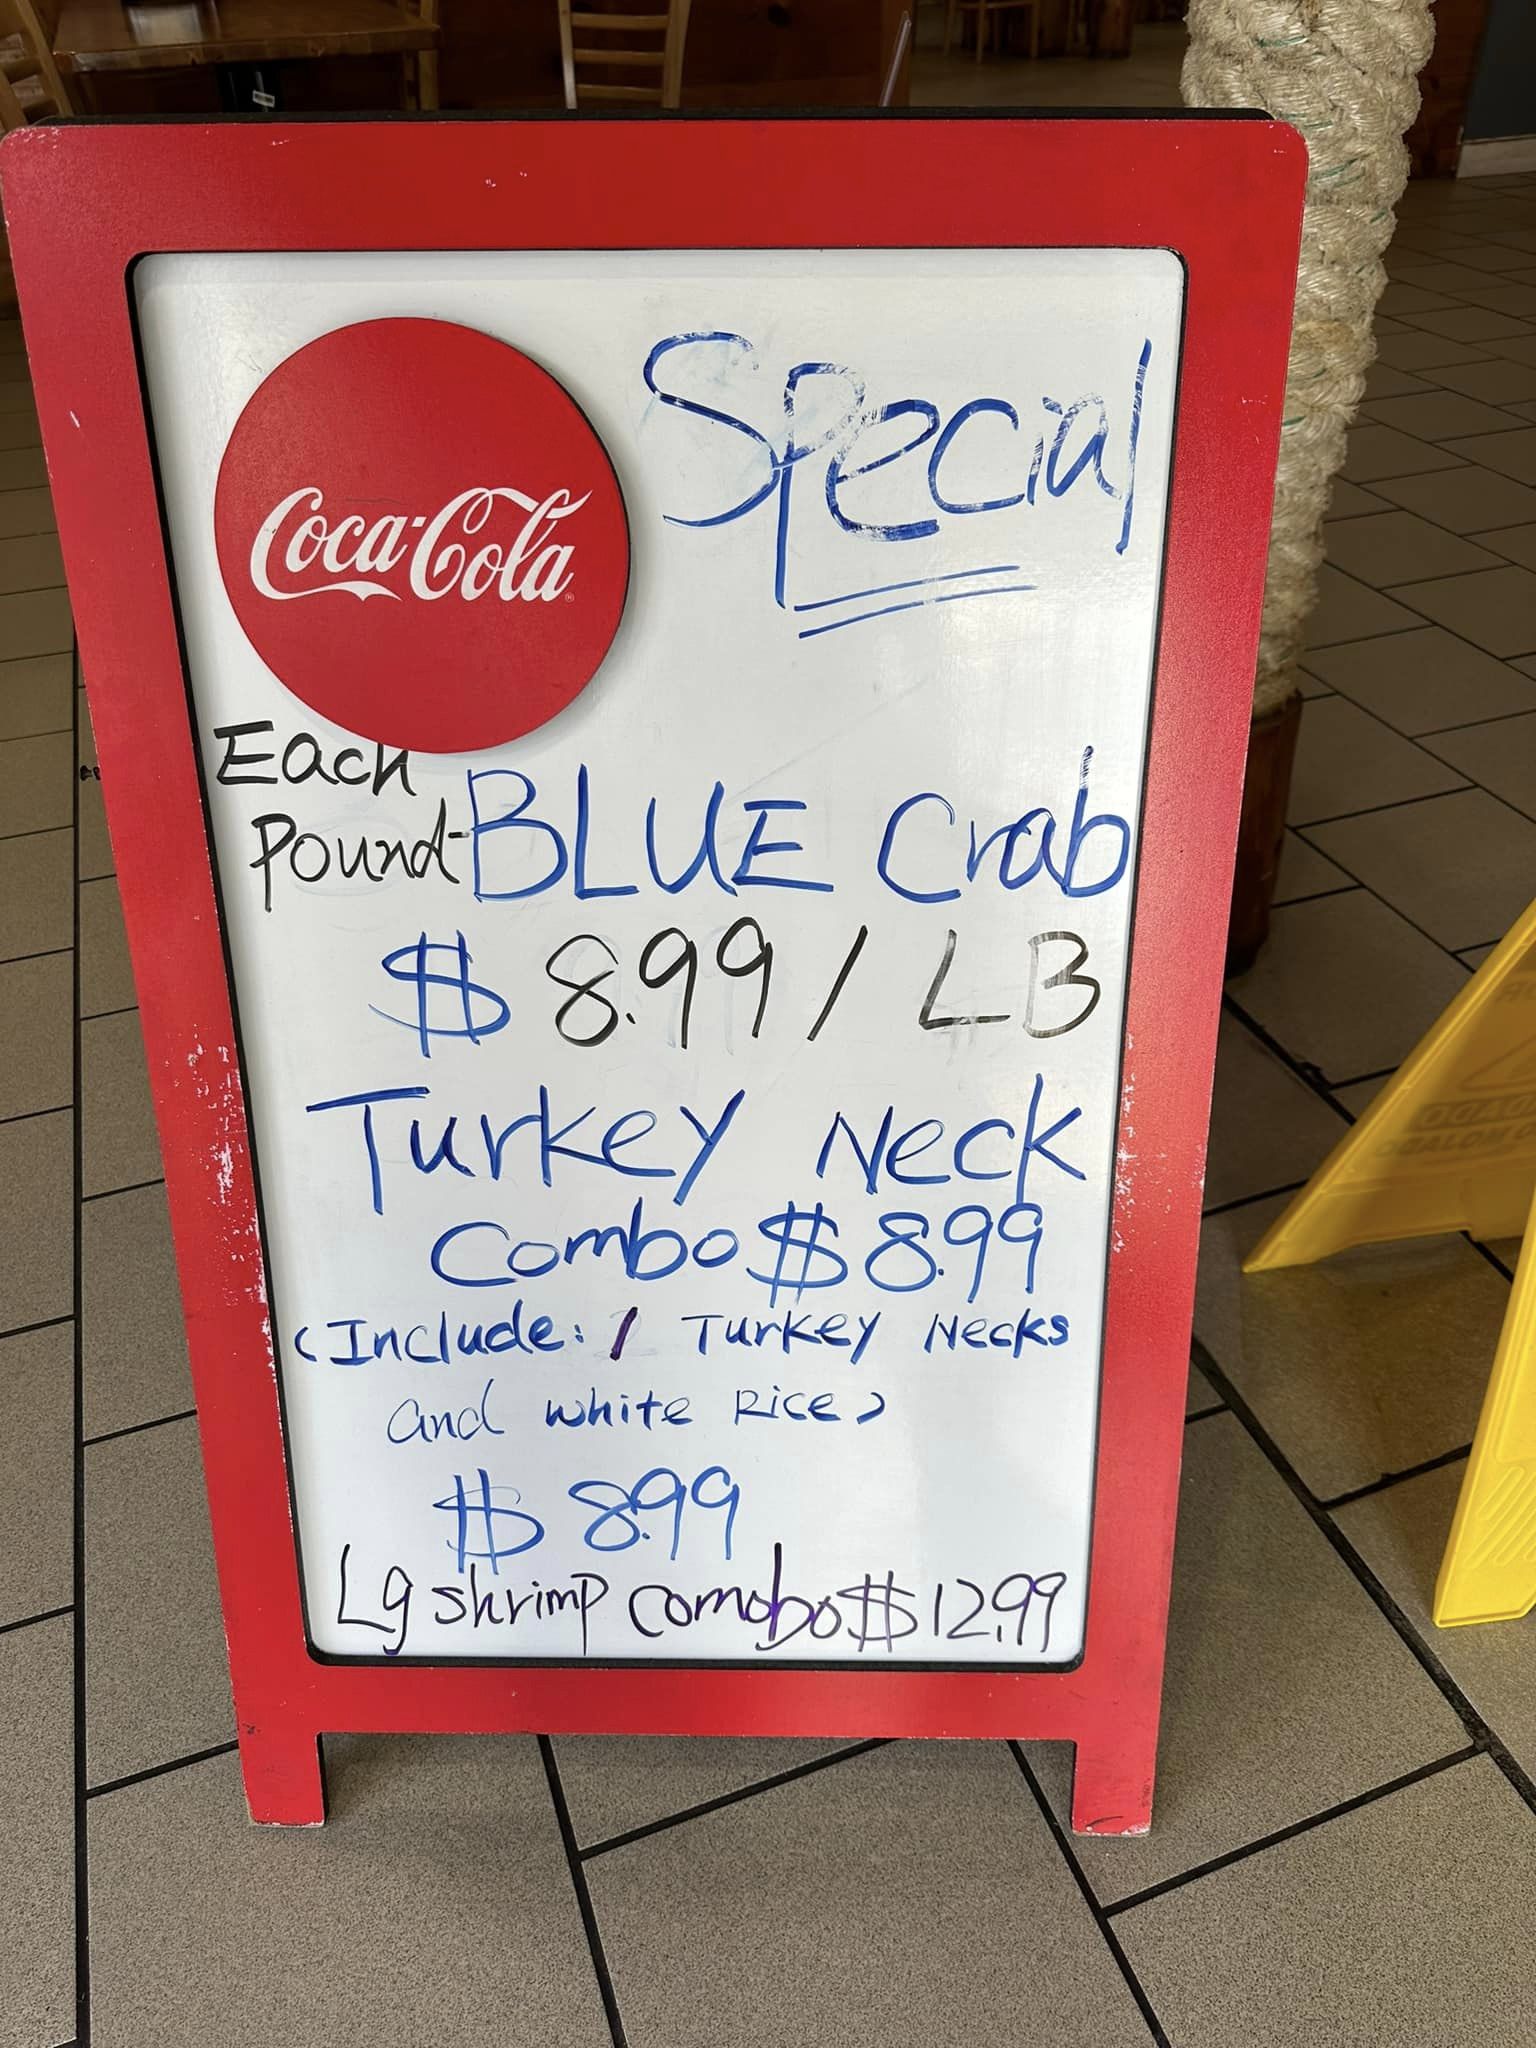 Special
Coca-Cola
Each
Pound-BLUE Crab
$8.99/LB
Turkey Neck
Combo $8.99
(Include: 1 Turkey Necks
and white Rice)
$8.99
Lg shrimp comobo $12.99